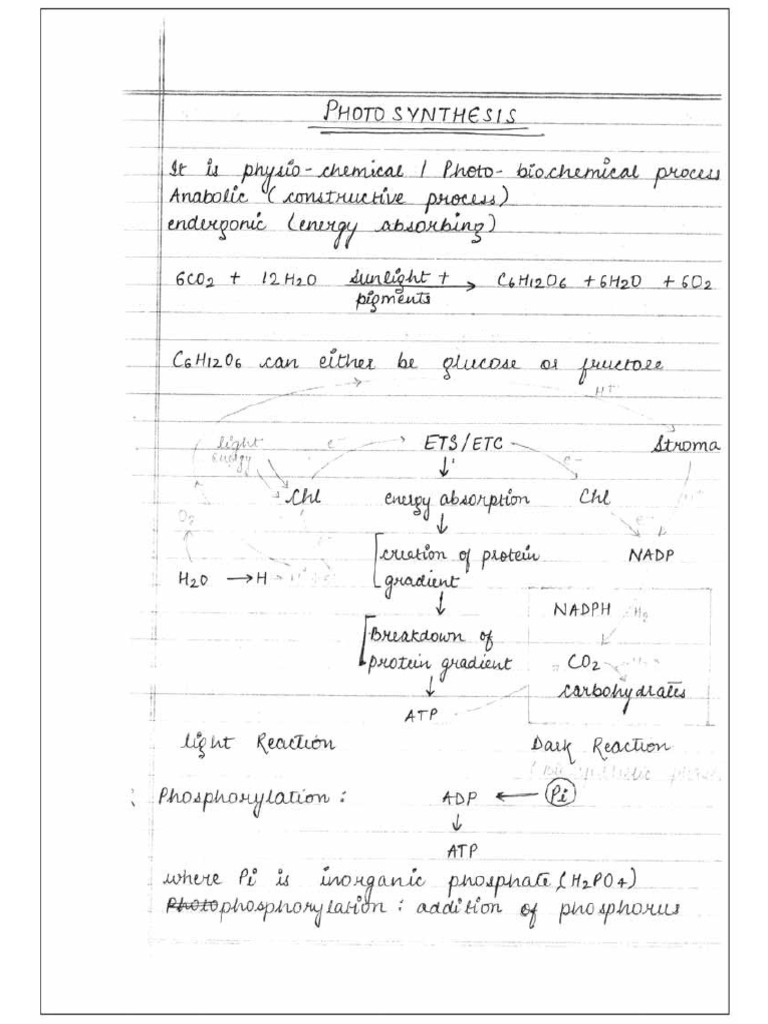 PHOTOSYNTHESIS
It is physio-chemical / Photo-biochemical process
Anabolic (constructive process)
endergonic (energy absorbing)
6CO2 + 12H2O sunlight + pigments → C6H12O6 + 6H2O + 6O2
C6H12O6 can either be glucose or fructose
H+
light energy e- ETS/ETC e- Stroma
Chl energy absorption Chl H+
O2 e-
H2O → H creation of protein gradient NADP
NADPH H2
Breakdown of protein gradient CO2
carbohydrates
ATP
light Reaction Dark Reaction
(Biosynthetic phase)
: Phosphorylation : ADP ← Pi
↓
ATP
where Pi is inorganic phosphate (H2PO4)
Photophosphorylation : addition of phosphorus